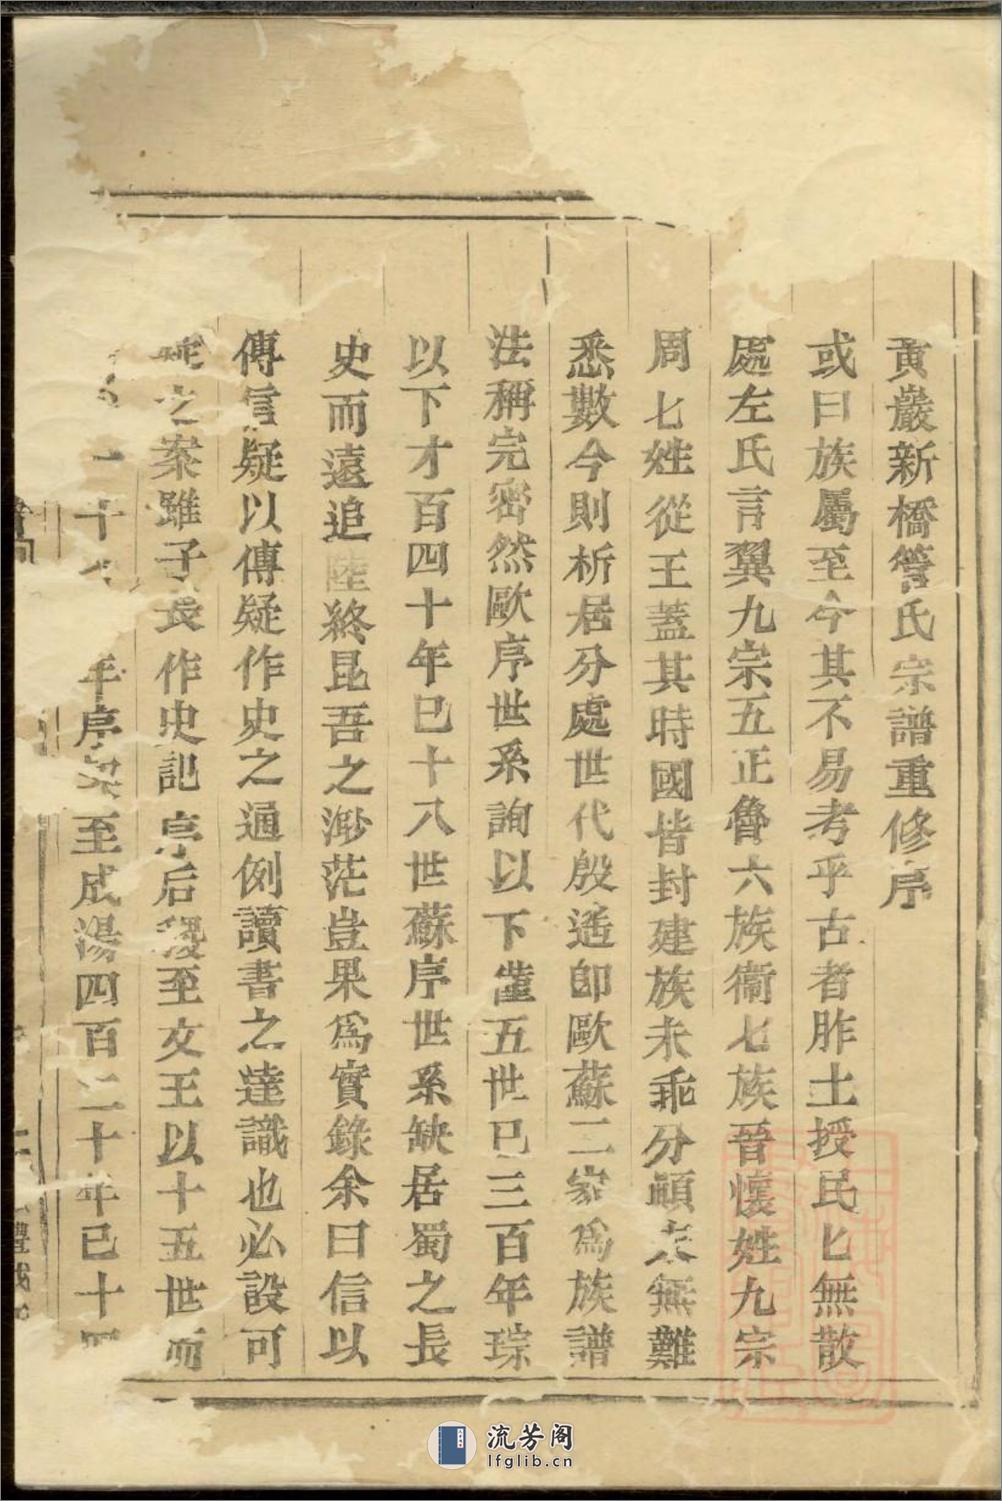 黃巖新橋管氏宗譜重修序
或曰族屬至今其不易考乎古者胙土授民匕無散
處左氏言翼九宗五正魯六族衞七族晉懷姓九宗
周七姓從王蓋其時國皆封建族未乖分頭夫無難
悉數今則析居分處世代殷遙卽歐蘇二家爲族譜
法稱完密然歐序世系詢以下僅五世已三百年琮
以下才百四十年已十八世蘇序世系缺居蜀之長
史而遠追陸終昆吾之渺茫豈果爲實錄余曰信以
傳信疑以傳疑作史之通例讀書之達識也必設可
之案雖子長作史記序后稷至文王以十五世而
十 年序契至成湯四百二十年已十四
流芳阁
lfglib.cn